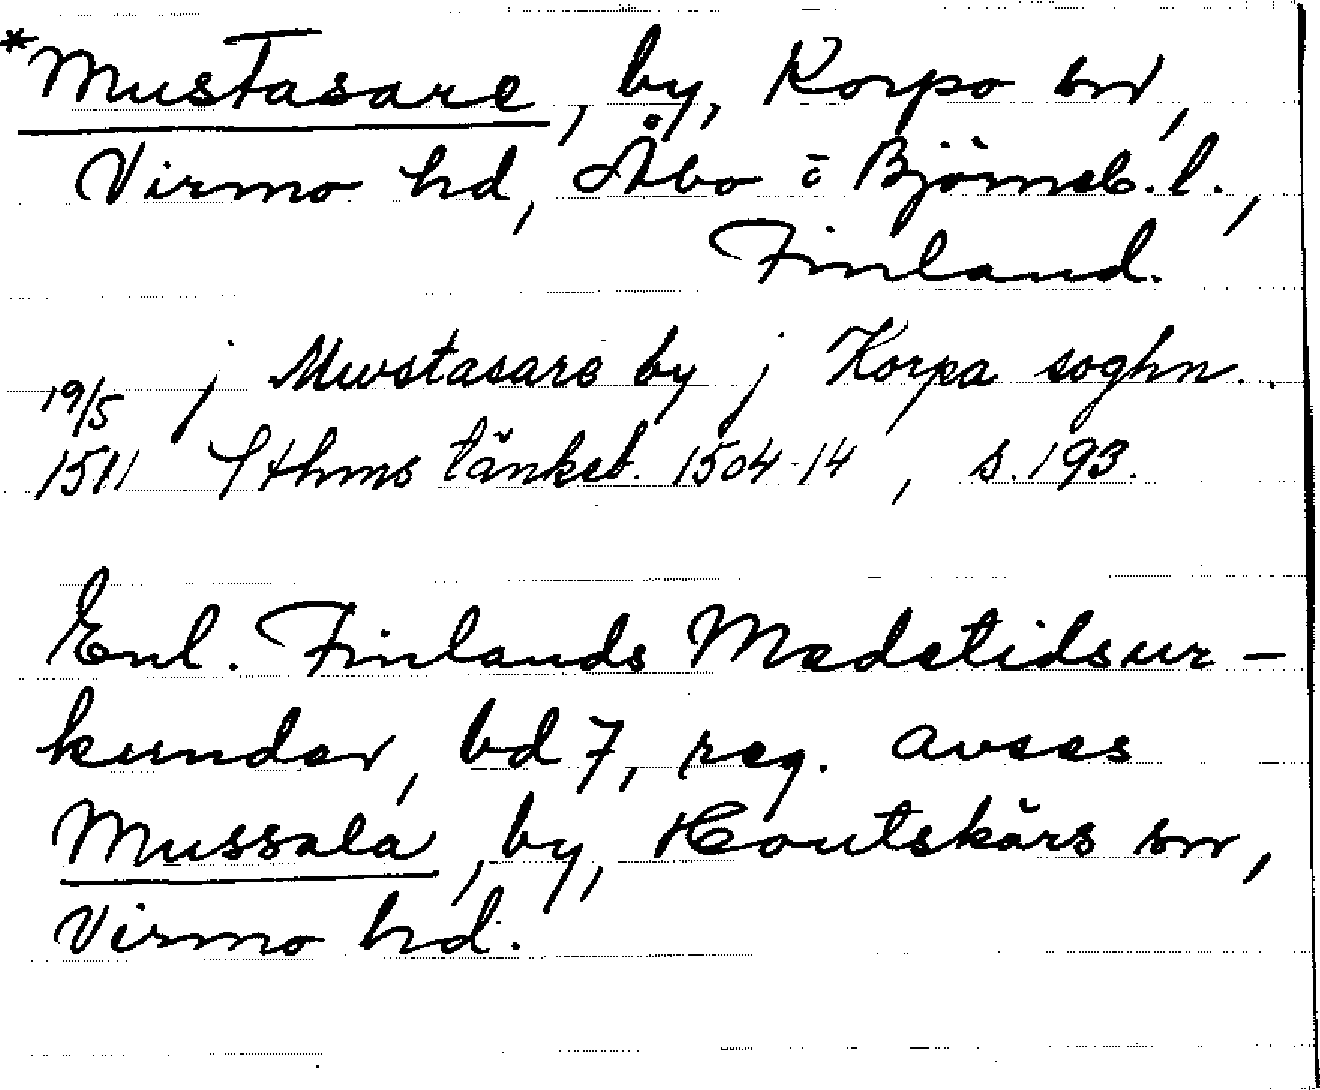 *Mustasare, by, Korpo sn,
Virmo hd, Åbo o Björneb. l.,
Finland.
19/5 j Mwstasare by j Korpa soghn..
1511 Sthms tänkeb. 1504-14, s. 193.
Enl. Finlands Medeltidsur-
kunder, bd 7, reg. avses
Mussala, by, Houtskärs sn,
Virmo hd.